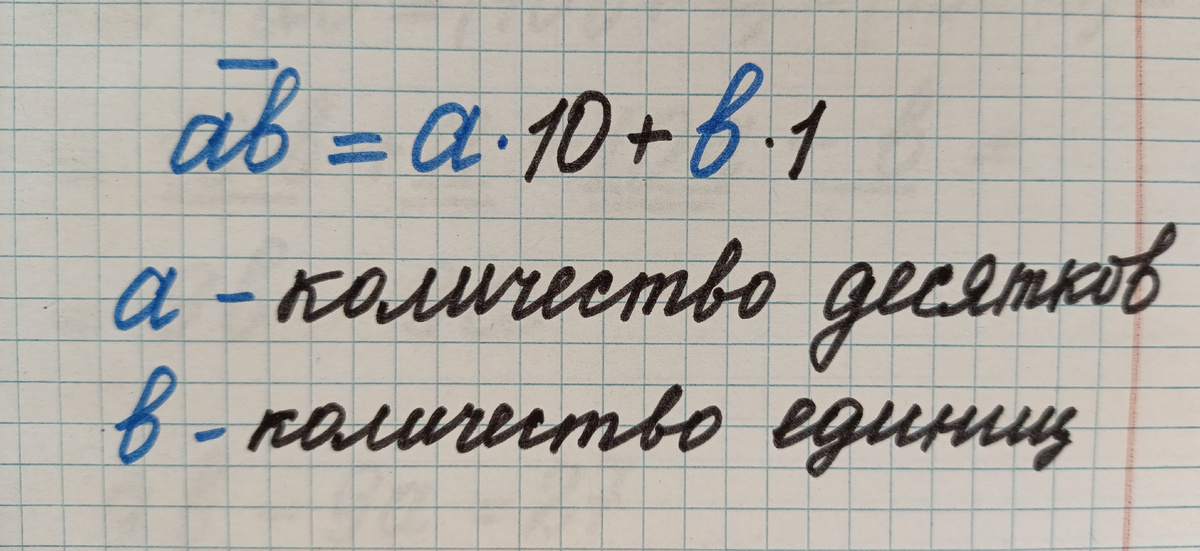 ав = а · 10 + в · 1
а - количество десятков
в - количество единиц